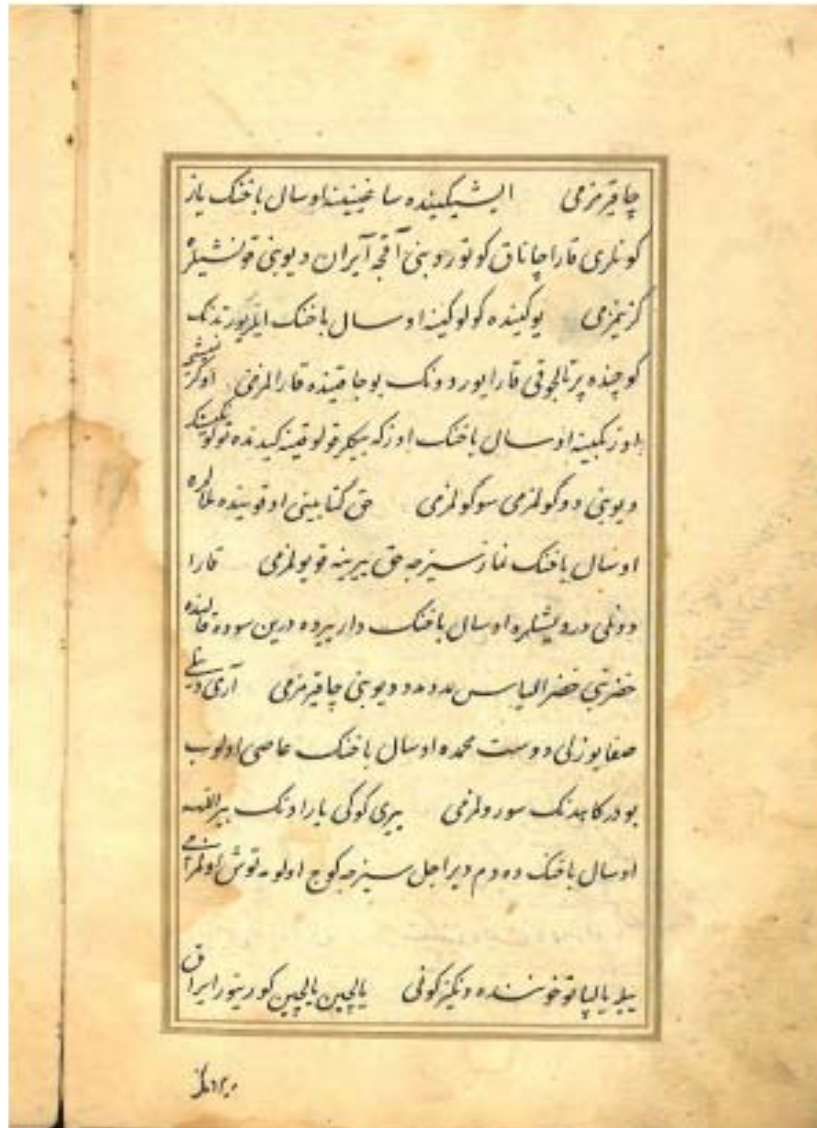 چاقرمزمی ایشیکینده ساغینینه اوسال باخنک یاز
کونلری قارا چاناق کوتوروبنی آقجه آیران دیوبنی قونشیلره
کزیمزمی یوکینده کولوکینه اوسال باخنک ایلر یورتدنک
کوچنده پرتالجوقی قارا یوردونک بوجاقینده قارالمزمی
اوزکمینه اوسال باخنک اوزکه بیکلر قولوقینه کیدنده
دیوبنی دوکولمزمی سوکولمزمی حق کتابینی اوقوینده عالمره
اوسال باخنک نماز سیزجه حق یرینه قویولمزمی قارا
دونلی درویشلره اوسال باخنک داریرده درین سوده قالنده
حضرتی خضر الیاس مدد مدد دیوبنی چاقرمزمی آری دینلی
صفا یوزلی دوست محمده اوسال باخنک عاصی اولوب
بو درکاهدنک سورولمزمی یری کوکی یارادنک بیر اللهه
اوسال باخنک ده دم دیر اجل سیزجه کوج اولومه توش اولمزمی
ییلر یالپا توخوننده دنکیز کونی یالچین یالچین کورینور ایراق